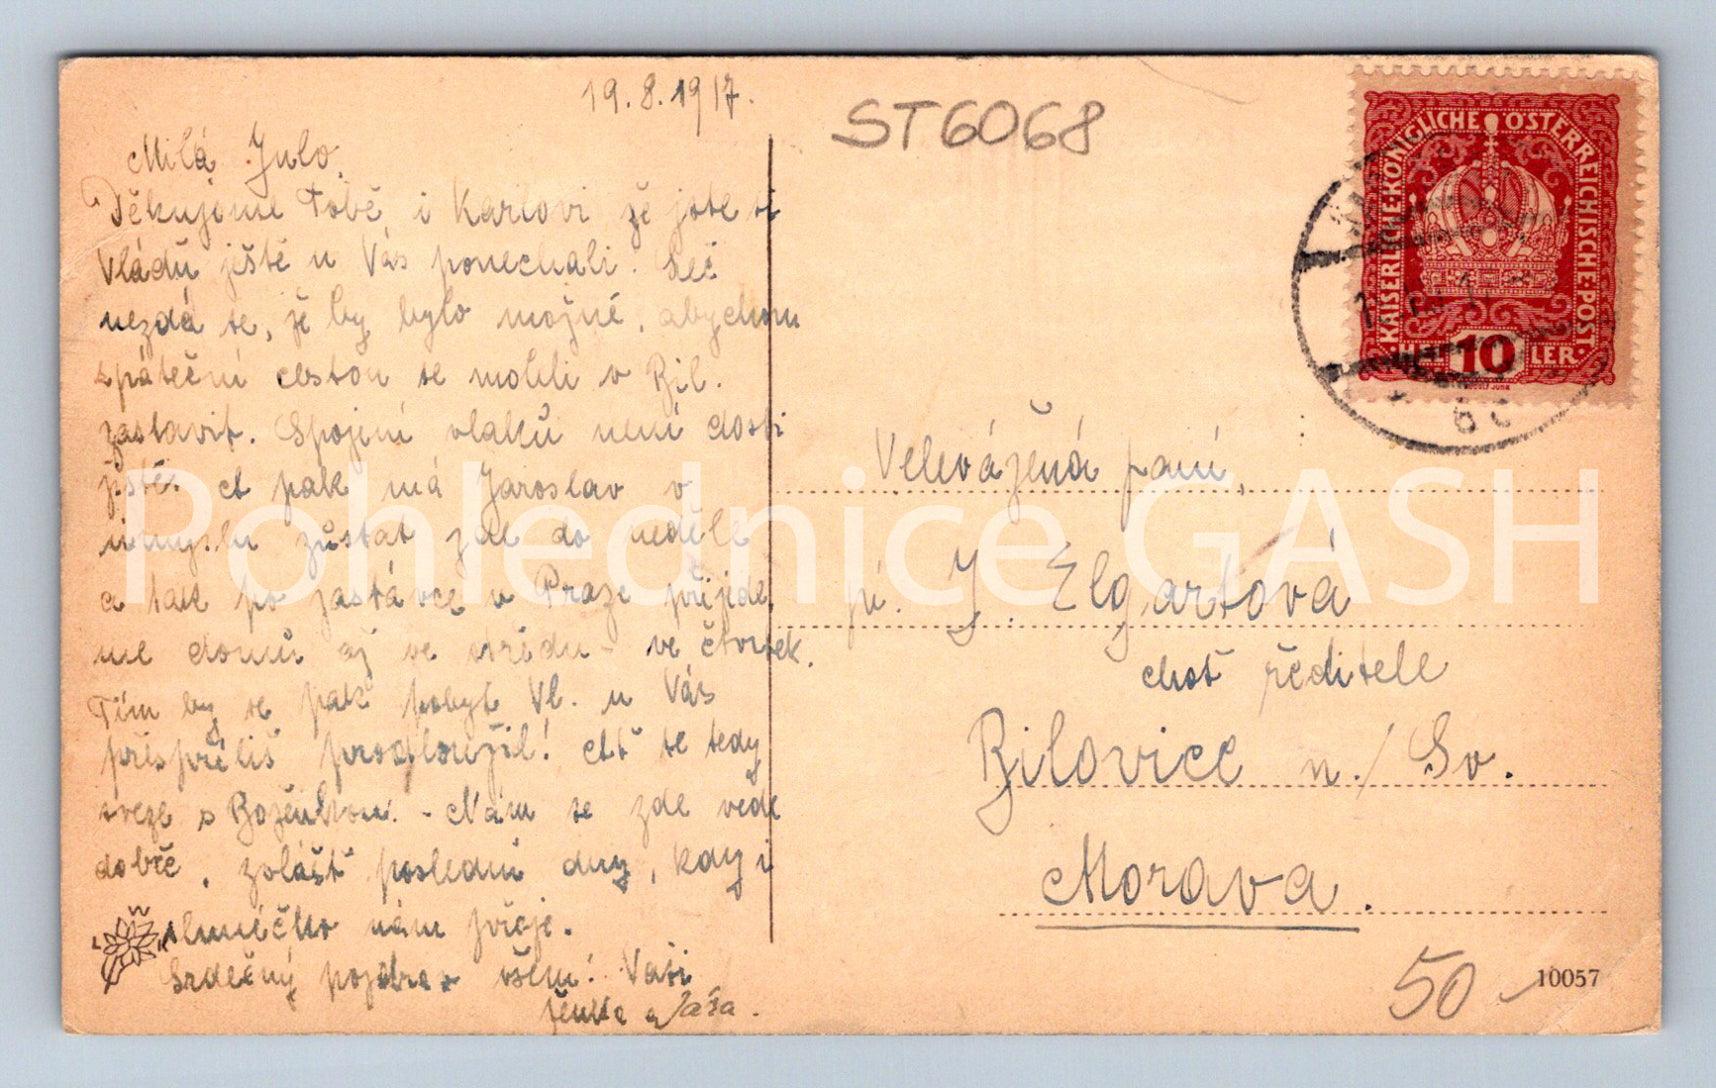 19.8.1917.
ST6068
Milá Julo.
Děkujeme Tobě i Karlovi že jste si
Vládu ještě u Vás ponechali. Leč
nezdá se, že by bylo možné, abychom
spáteční cestou se mohli v Bil.
zastavit. Spojení vlaků není dosti
jisté, a pak má Jaroslav v
úmyslu zůstat zde do neděle
a tak po zastávce v Praze přijde
me domů až ve středu - ve čtvrtek.
Tím by se pak pobyt Vl. u Vás
přespříliš prodloužil! Ať se tedy
sveze s Boženkou. - Nám se zde vede
dobře, zvlášť poslední dny, kdy i
sluníčko nám přeje.
Srdečný pozdrav všem! Vaši
a Jára.
KAISERLICHE KÖNIGLICHE ÖSTERREICHISCHE POST
HELLER
10
Velevážená paní,
pí. J. Elgartová
choť ředitele
Bilovice n./Sv.
Morava.
50
10057
Pohlednice GASH